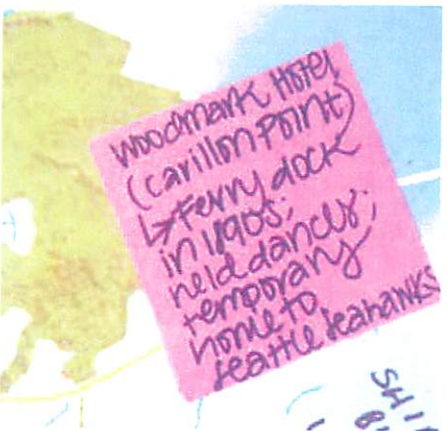 Woodmark Hotel
(Carillon Point)
↳ Ferry dock
in 1890s;
held dances;
temporary
home to
Seattle Seahawks